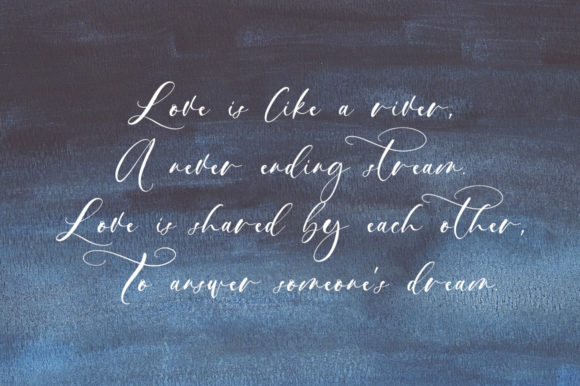 Love is like a river,
A never ending stream.
Love is shared by each other,
To answer someone's dream.